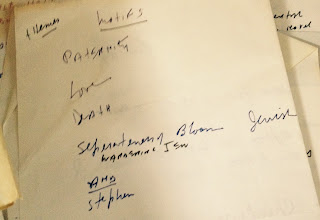 themes motifs
PATERNITY
Love
DEATH
Separateness of Bloom Jewish
WANDERING JEW
AND
Stephen